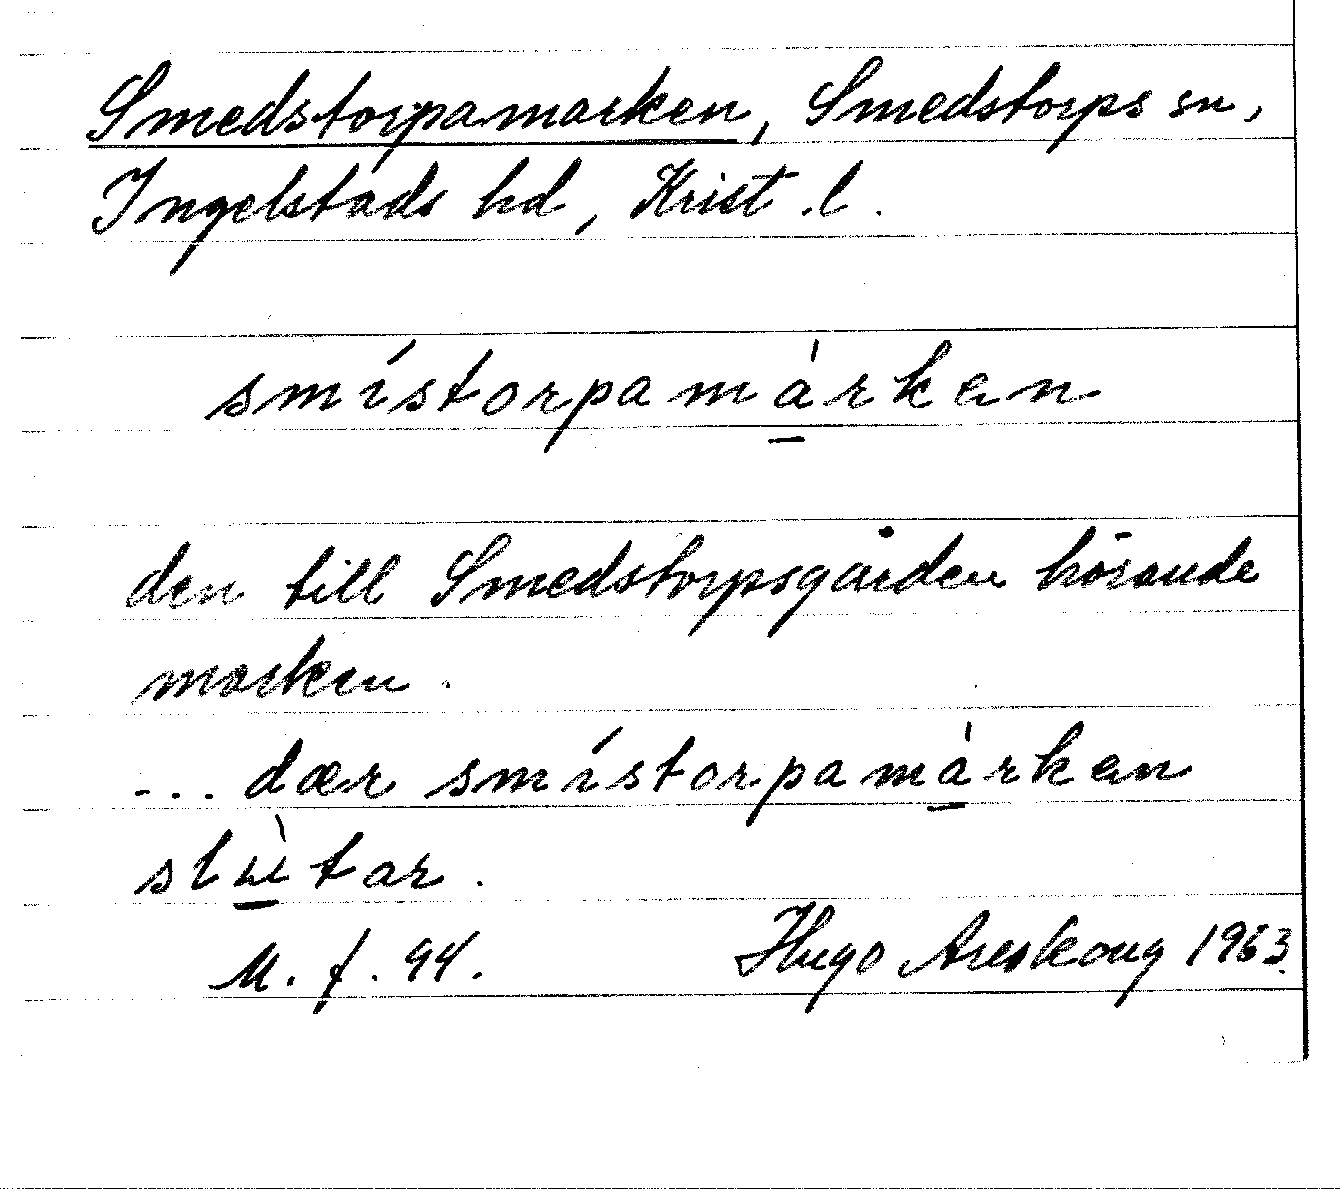 Smedstorpamarken, Smedstorps sn,
Ingelstads hd, Krist. l.
smístorpama̱̍rken
den till Smedstorpsgården hörande
marken.
... dær smístorpama̱̍rken
slù̱tar.
M. f. 94.
Hugo Areskoug 1963.